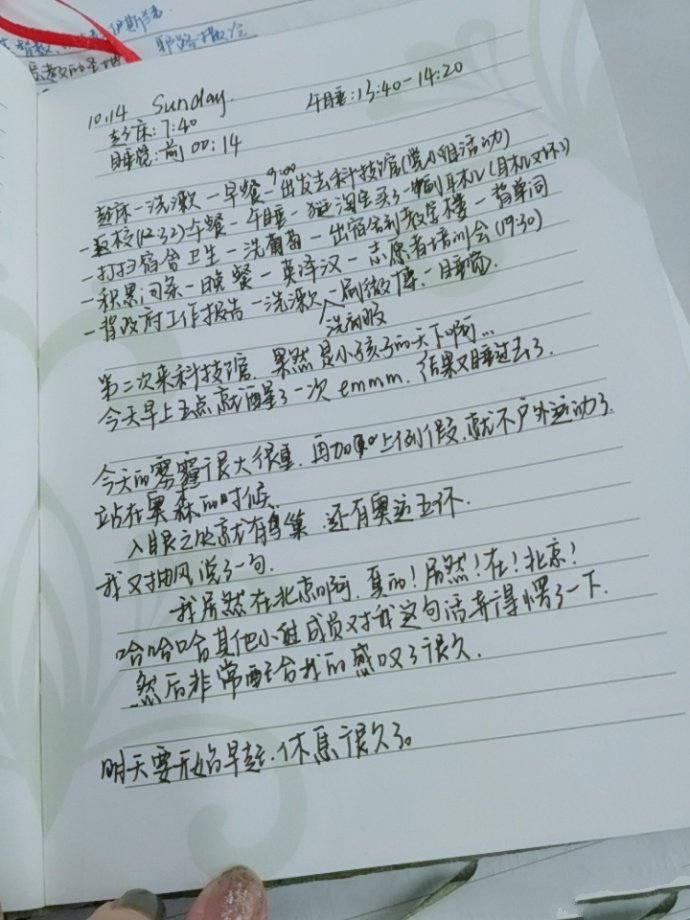 伊斯兰
耶路撒冷
10.14 Sunday.
午睡:13:40-14:20
起床:7:40
睡觉:前 00:14
9:00
起床-洗漱-早餐-出发去科技馆(党小组活动)
-返校(12:32)-午餐-午睡-逛淘宝买了一副耳机(耳机又坏了)
-打扫宿舍卫生-洗葡萄-出宿舍到教室楼-背单词
-积累词条-晚餐-英译汉-志愿者培训会(19:30)
-背政府工作报告-洗漱-刷微博-睡觉.
洗衣服
第二次来科技馆.果然是小孩子的天下啊...
今天早上五点就醒了一次emmm.结果又睡过去了.
今天的雾霾很大很重.再加上例假.就不户外运动了.
站在奥森的时候
入眼之处就有鸟巢.还有奥运五环.
我又抽风说了一句.
我居然在北京啊.真的!居然!在!北京!
哈哈哈其他小组成员对我这句话弄得懵了一下.
然后非常配合我的感叹了很久.
明天要开始早起.休息很久了。